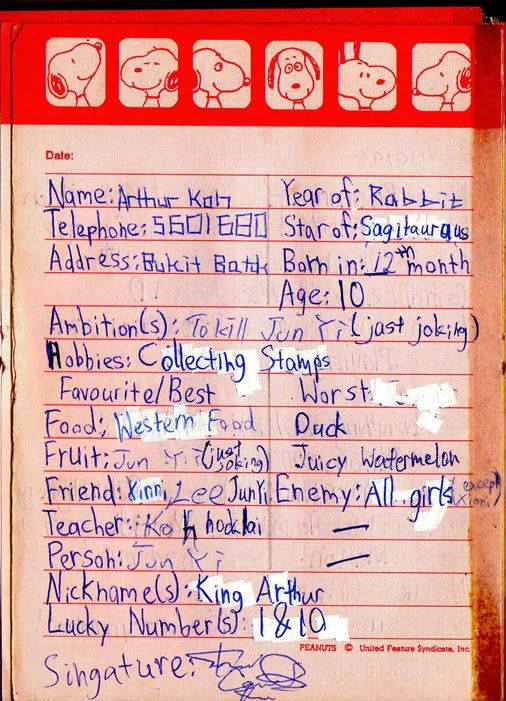 Date:
Name: Arthur Koh Year of: Rabbit
Telephone: 5601680 Star of: Sagitauraus
Address: Bukit Batok Born in: 12th month
Age: 10
Ambition(s): To kill Jun Yi (jast joking)
Hobbies: Collecting Stamps
Favourite/Best Worst:
Food: Western Food Duck
Fruit: Jun Yi (just joking) Juicy Watermelon
Friend: Xinni, Lee JunYi Enemy: All girls (except Xinni)
Teacher: Ko h hock lai —
Person: Jun Yi —
Nickname(s): King Arthur
Lucky Number(s): 1 & 10
PEANUTS © United Feature Syndicate, Inc.
Singature: